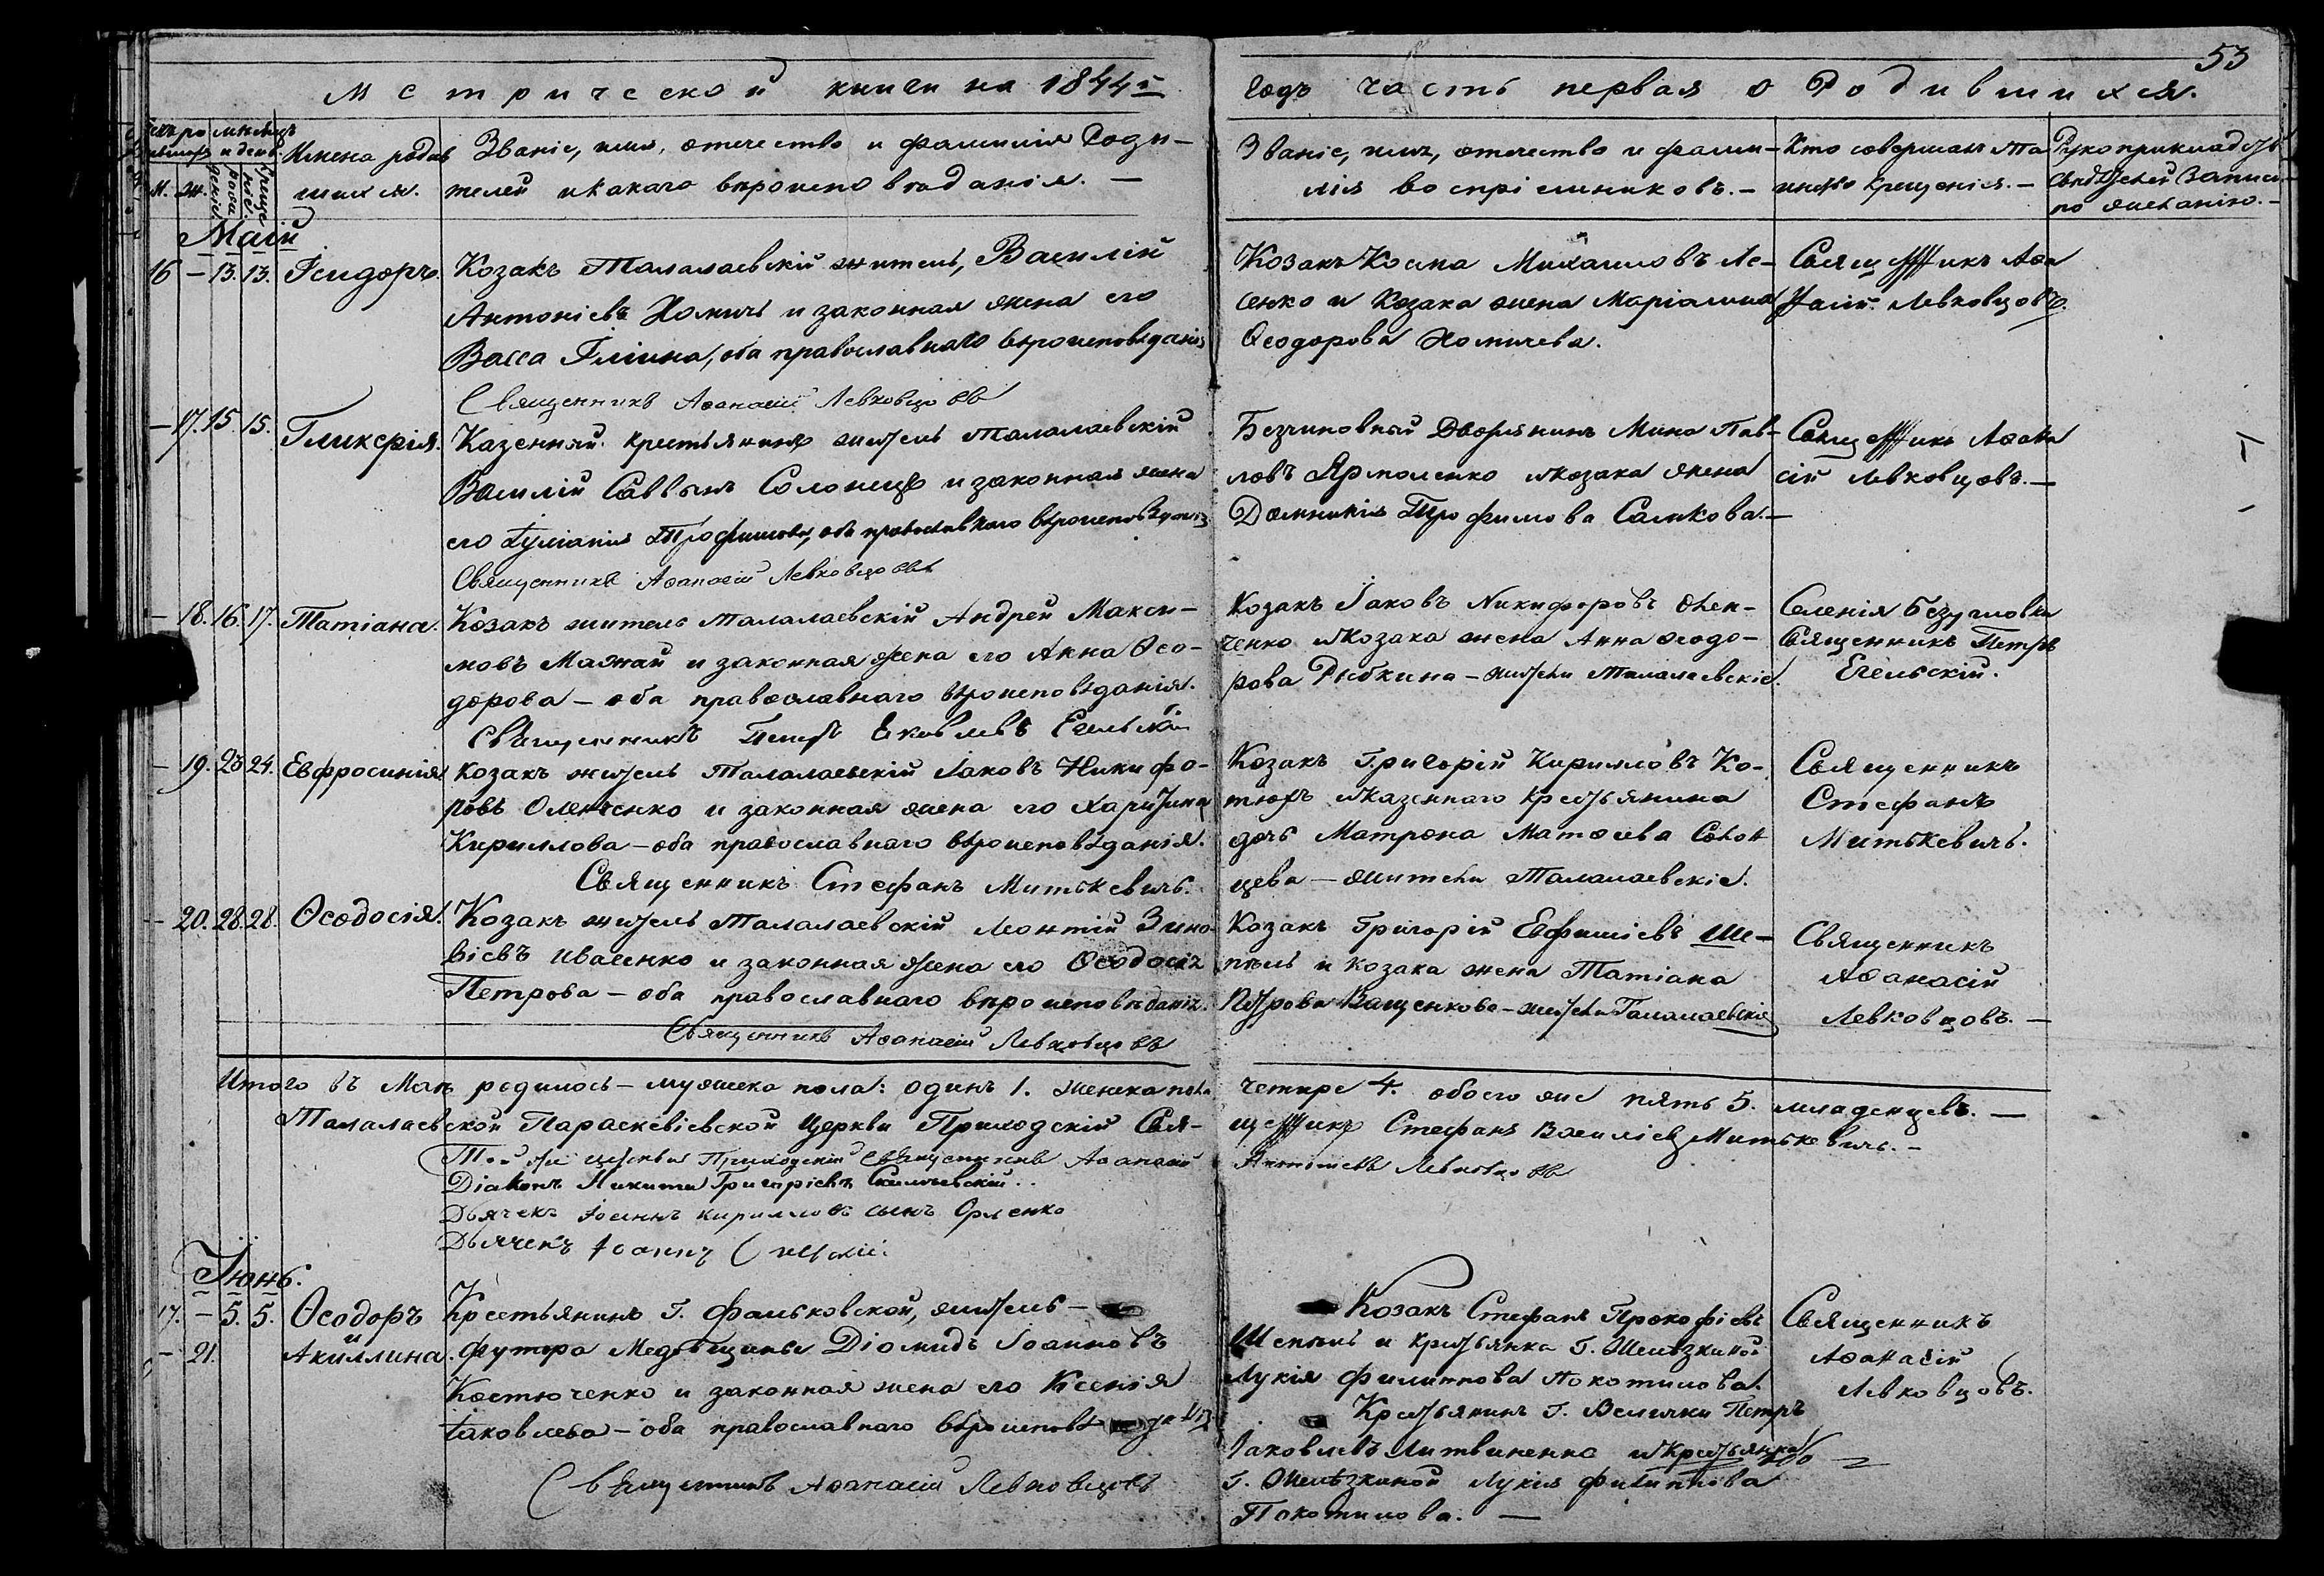 53
Метрической книги на 1844й
годъ часть первая о Родившихся.
Имена родив
шихся.
Званіе, имя, отечество и фамилія Роди-
телей и какаго вѣроисповѣданія. —
Званіе, имя, отечество и фами-
лія воспріемниковъ. —
Кто совершалъ Та
инство Крещенія. —
Рукоприкладство
свидѣтелей записи
по желанію. —
М. Ж.
Маій
16 — 13. 13. Ісидоръ.
Козакъ Талалаевскій житель, Василій
Антоніевъ Хомичъ и законная жена его
Васса Гліина, оба православнаго вѣроисповѣданія
Священникъ Аѳанасій Левковцовъ
Козакъ Косма Михаиловъ Ле-
сенко и Козака жена Маріамна
Ѳеодорова Хомичева.
Священникъ Аѳа
насій Левковцовъ.
— 17. 15. 15. Гликерія.
Казенный крестьянинъ житель Талалаевскій
Василій Саввинъ Солонецъ и законная жена
его Іуліанія Трофимова, оба православнаго вѣроисповѣданія
Священникъ Аѳанасій Левковцовъ
Безчиновный Дворянинъ Мина Пав-
ловъ Ярмоленко и козака жена
Домникія Трофимова Салкова. —
Священникъ Аѳана
сій Левковцовъ. —
— 18. 16. 17. Татіана.
Козакъ житель Талалаевскій Андрей Макси-
мовъ Мажай и законная жена его Анна Ѳео-
дорова — оба православнаго вѣроисповѣданія.
Священникъ Петръ Яковлевъ Егельскій
Козакъ Іаковъ Никифоровъ Олен-
ченко и Козака жена Анна Ѳеодо-
рова Рыбкина — жители Талалаевскіе.
Селенія Безугловки
Священникъ Петръ
Егельскій.
— 19. 23 24. Евфросинія
Козакъ житель Талалаевскій Іаковъ Никифо-
ровъ Оленченко и законная жена его Харитина
Кириллова — оба православнаго вѣроисповѣданія.
Священникъ Стефанъ Митькевичъ.
Козакъ Григорій Кирилловъ Ко-
тюхъ и казеннаго крестьянина
дочь Матрона Матѳѣева Солон
цева — жители Талалаевскіе.
Священникъ
Стефанъ
Митькевичъ.
— 20. 28. 28. Ѳеодосія.
Козакъ житель Талалаевскій Леонтій Зино-
віевъ Иваненко и законная жена его Ѳеодосія
Петрова — оба православнаго вѣроисповѣданія.
Священникъ Аѳанасій Левковцовъ
Козакъ Григорій Евфиміевъ Ше-
пель и козака жена Татіана
Петрова Ващенкова — жители Талалаевскіе
Священникъ
Аѳанасій
Левковцовъ. —
Итого въ Маѣ родилось — мужеска пола: одинъ 1. женска пола
четыре 4. обоего же пять 5. младенцевъ. —
Талалаевской Параскевіевской Церкви Приходскій Свя-
щенникъ Стефанъ Василіевъ Митькевичъ. —
Той же церкви Приходскій Священникъ Аѳанасій
Антоніевъ Левковцовъ
Діаконъ Никита Григоріевъ
Дьячекъ Іоаннъ Кирилловъ сынъ Орленко
Дьячекъ Іоаннъ
Іюнь.
17. — 5. 5. Ѳеодоръ
и
— 21. Акиллина.
Крестьянинъ Г. Фальковской, житель —
футора Медовщины Діомидъ Іоанновъ
Костюченко и законная жена его Ксенія
Іаковлева — оба православнаго вѣроисповѣданія
Священникъ Аѳанасій Левковцовъ
Козакъ Стефанъ Прокофіевъ
Шепель и крестьянка Г. Шелѣзкиной
Лукія Филиппова Покотилова.
Крестьянинъ Г. Велички Петръ
Іаковлевъ Литвиненко и крестьянка
Г. Шелѣзкиной Лукія Филиппова
Покотилова. —
Священникъ
Аѳанасій
Левковцовъ.